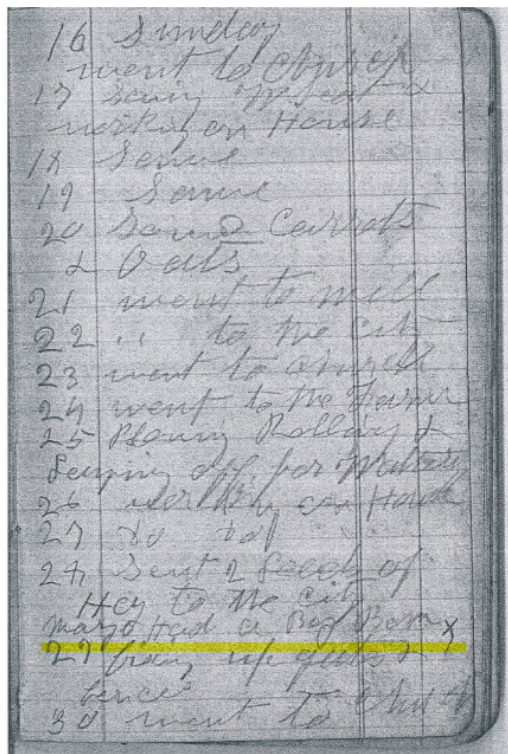 16 Sunday
went to Church
17 Sowing Wheat &
working on House
18 Same
19 Same
20 Sowed Carrots
& Oats
21 went to mill
22 " to the city
23 went to Church
24 went to the Farm
25 &
off for
26 working on House
27 do do
28 Sent 2 Loads of
Hay to the city
mayo Had a Boy Born x
29 fixing up gates &
fences
30 went to